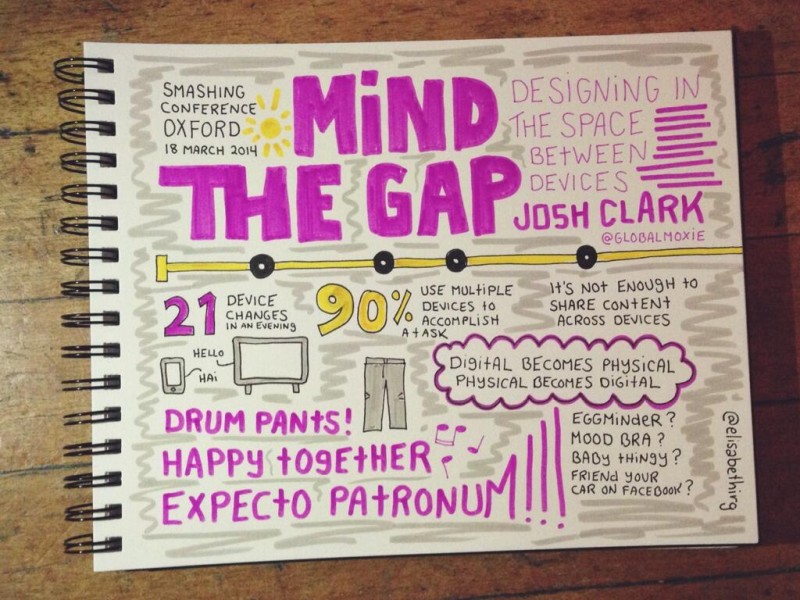 SMASHING
CONFERENCE
OXFORD
18 MARCH 2014
MiND
THE GAP
DESIGNING IN
THE SPACE
BEtWEEN
DEVICES
JOSH CLARK
@GLOBALMOXIE
21 DEVICE
CHANGES
IN AN EVENING
90% USE MULtiPLE
DEVICES to
ACCOMPLISH
A tASK
It's NOT ENOUGH to
SHARE CONtENt
ACROSS DEVICES
HELLO
HAi
DiGitAL BECOMES PHYSICAL
PHYSICAL BECOMES DIGITAL
DRUM PANtS!
HAPPY togEtHER
EXPECtO PAtRONUM!!!
EGGMiNDER?
MOOD BRA?
BABY tHiNGY?
FRiEND YOUR
CAR ON FACEBOOK?
@elisabethirg